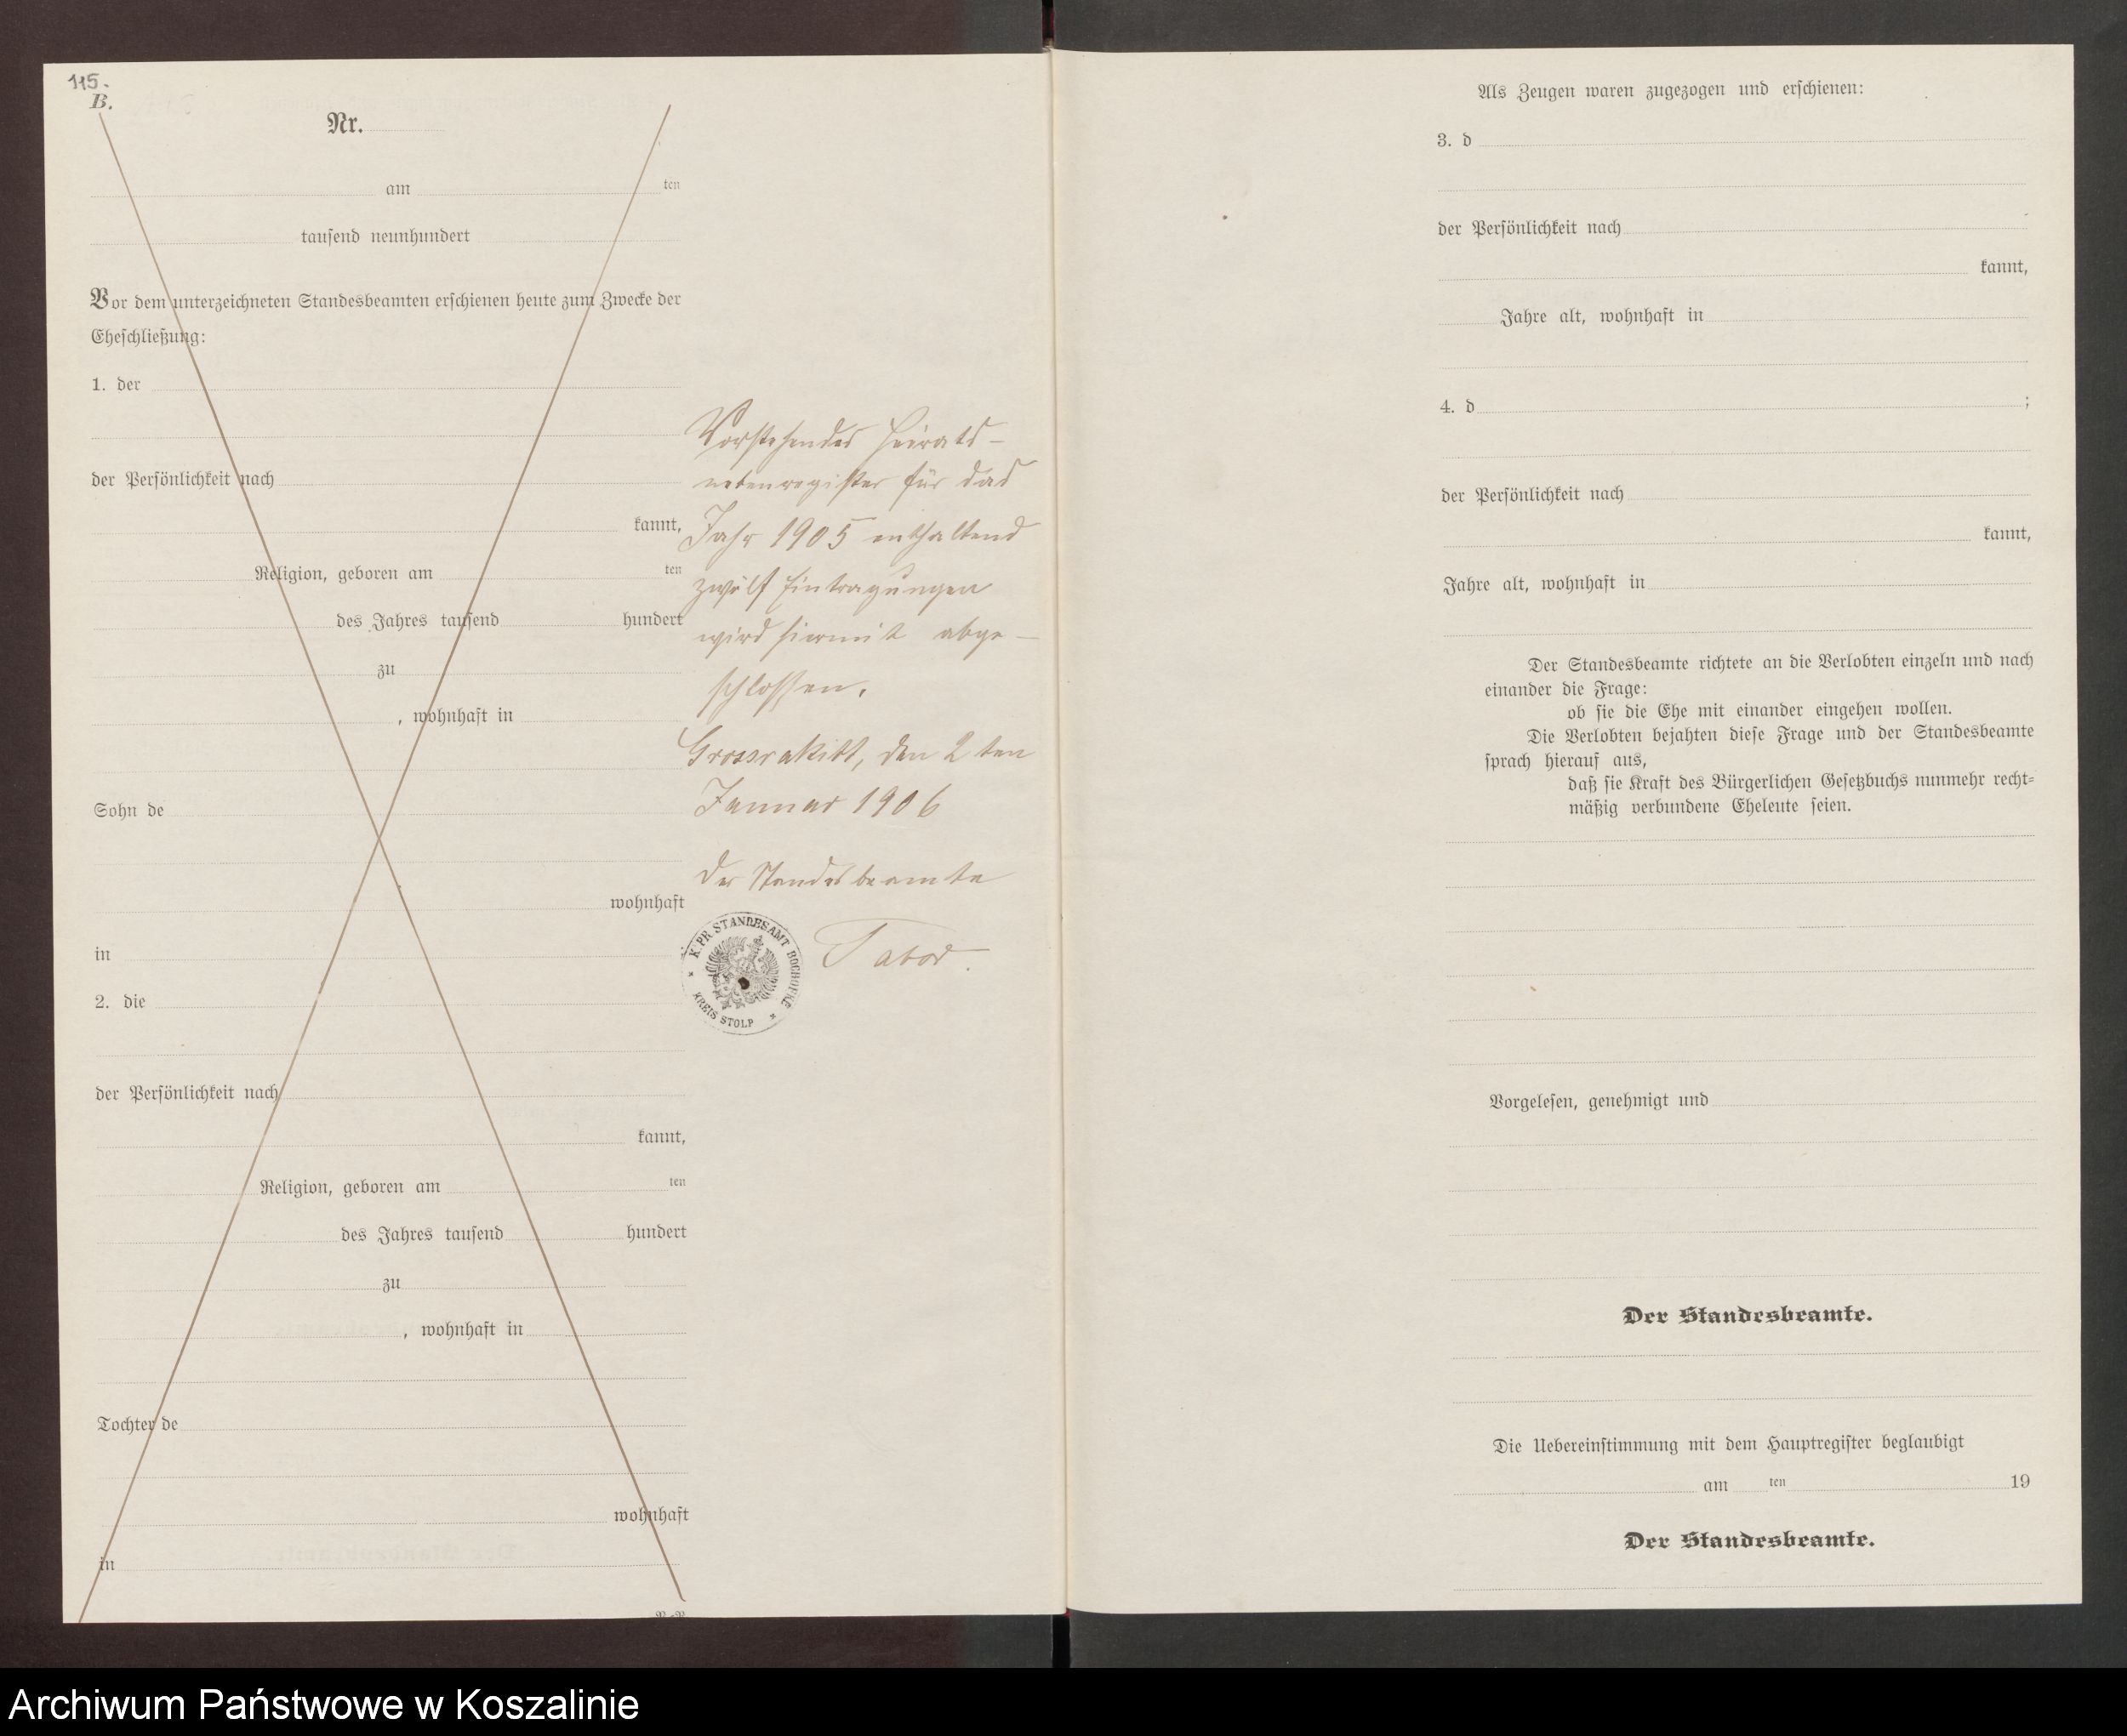 115.
B.
Nr.
am ten
tausend neunhundert
Vor dem unterzeichneten Standesbeamten erschienen heute zum Zwecke der
Eheschließung:
1. der
der Persönlichkeit nach
kannt,
Religion, geboren am ten
des Jahres tausend hundert
zu
, wohnhaft in
Sohn de
wohnhaft
in
2. die
der Persönlichkeit nach
kannt,
Religion, geboren am ten
des Jahres tausend hundert
zu
, wohnhaft in
Tochter de
wohnhaft
in
Vorstehendes Heirats-
nebenregister für das
Jahr 1905 enthaltend
zwölf Eintragungen
wird hiermit abge-
schlossen.
Grossrakitt, den 2ten
Januar 1906
Der Standesbeamte
Tabor.
K. PR. STANDESAMT ROCHOFKE
* KREIS STOLP *
Als Zeugen waren zugezogen und erschienen:
3. d
der Persönlichkeit nach
kannt,
Jahre alt, wohnhaft in
4. d ;
der Persönlichkeit nach
kannt,
Jahre alt, wohnhaft in
Der Standesbeamte richtete an die Verlobten einzeln und nach
einander die Frage:
ob sie die Ehe mit einander eingehen wollen.
Die Verlobten bejahten diese Frage und der Standesbeamte
sprach hierauf aus,
daß sie Kraft des Bürgerlichen Gesetzbuchs nunmehr recht-
mäßig verbundene Eheleute seien.
Vorgelesen, genehmigt und
Der Standesbeamte.
Die Uebereinstimmung mit dem Hauptregister beglaubigt
am ten 19
Der Standesbeamte.
Archiwum Państwowe w Koszalinie